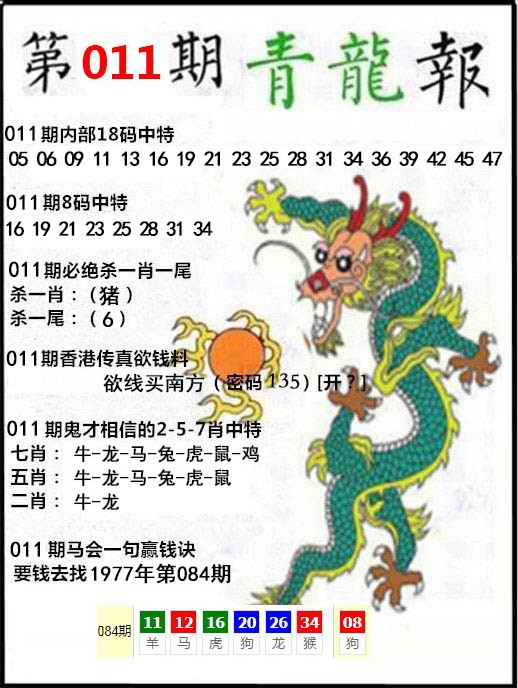 第011期青龍報
011期内部18码中特
05 06 09 11 13 16 19 21 23 25 28 31 34 36 39 42 45 47
011期8码中特
16 19 21 23 25 28 31 34
011期必绝杀一肖一尾
杀一肖：（猪）
杀一尾：（6）
011期香港传真欲钱料
欲线买南方（密码135）[开？]
011期鬼才相信的2-5-7肖中特
七肖： 牛-龙-马-兔-虎-鼠-鸡
五肖： 牛-龙-马-兔-虎-鼠
二肖： 牛-龙
011期马会一句赢钱诀
要钱去找1977年第084期
084期 11 12 16 20 26 34 08
羊 马 虎 狗 龙 猴 狗